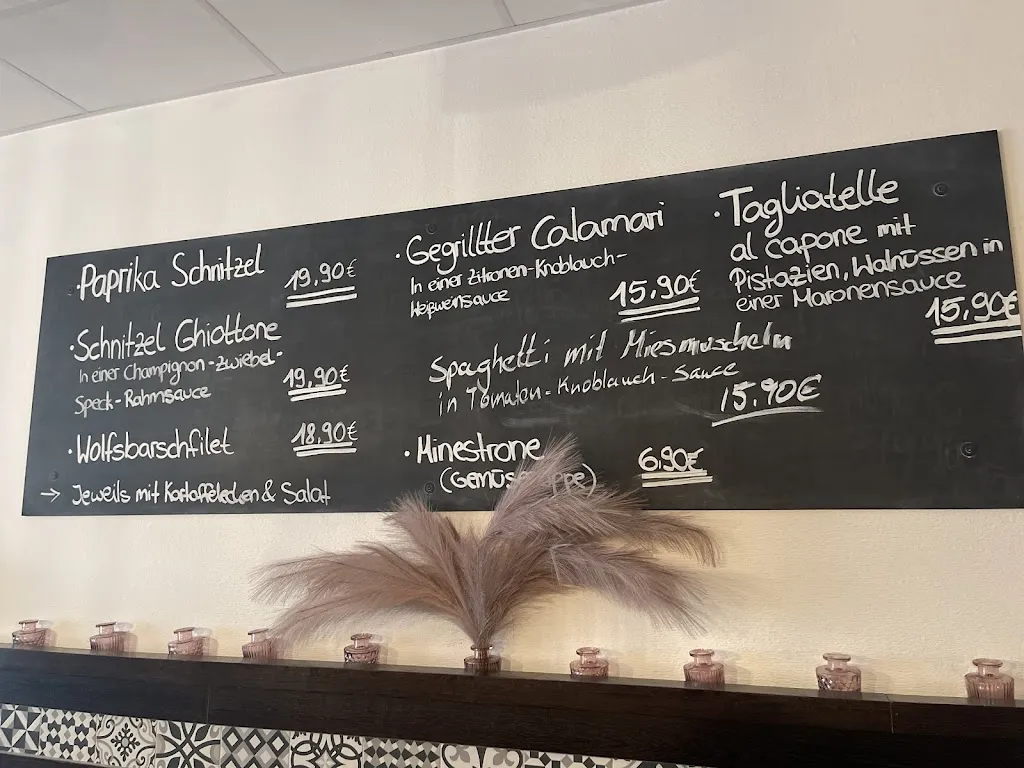 · Paprika Schnitzel 19,90€
· Schnitzel Ghiottone
In einer Champignon-Zwiebel-
Speck-Rahmsauce 19,90€
· Wolfsbarschfilet 18,90€
→ Jeweils mit Kartoffelecken & Salat
· Gegrillter Calamari
In einer Zitronen-Knoblauch-
Weißweinsauce 15,90€
Spaghetti mit Miesmuscheln
in Tomaten-Knoblauch-Sauce
15,90€
· Minestrone 6,90€
· Tagliatelle
al Capone mit
Pistazien, Walnüssen in
einer Maronensauce
15,90€